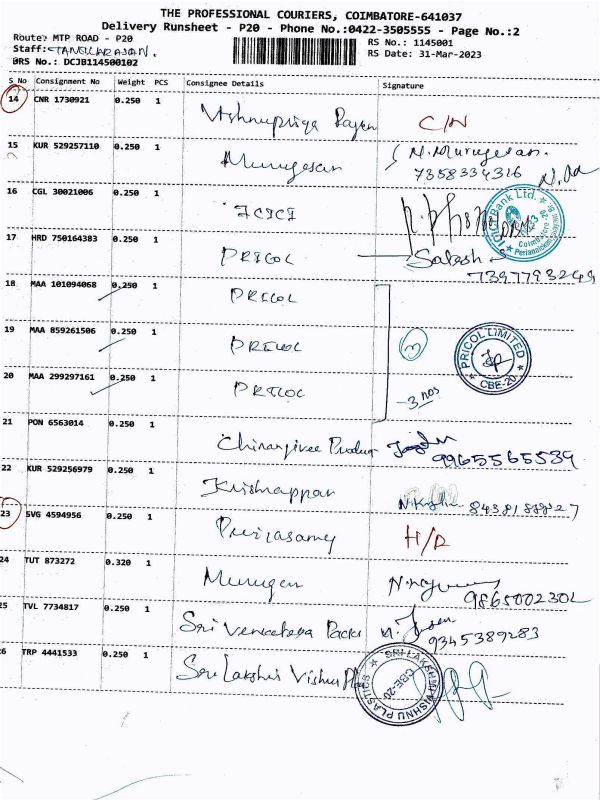 THE PROFESSIONAL COURIERS, COIMBATORE-641037
Delivery Runsheet - P20 - Phone No.:0422-3505555 - Page No.:2
Route: MTP ROAD - P20 RS No.: 1145001
Staff: RS Date: 31-Mar-2023
DRS No.: DCJB114500102
S No Consignment No Weight PCS Consignee Details Signature
14 CNR 1730921 0.250 1 Vishnupriya Rajan C/N
15 KUR 529257110 0.250 1 Murugesan N. Murugesan.
7358334316
16 CGL 30021006 0.250 1 ICICI ICICI Bank Ltd.
17 HRD 750164383 0.250 1 PRICOL Satesh
7397793249
18 MAA 101094068 0.250 1 PRICOL
19 MAA 859261506 0.250 1 PRICOL 3 PRICOL LIMITED CBE-20
20 MAA 299297161 0.250 1 PRICOL -3 nos
21 PON 6563014 0.250 1 Chiranjivee Product
99655 65539
22 KUR 529256979 0.250 1 Krishnappan
23 SVG 4594956 0.250 1 H/D
24 TUT 873272 0.320 1 Murugan
9865002302
25 TVL 7734817 0.250 1 Sri Venkateswa Packs
9345389283
26 TRP 4441533 0.250 1 Sri Lakshmi Vishnu Pla SRI LAKSHMI VISHNU PLASTICS CBE-20